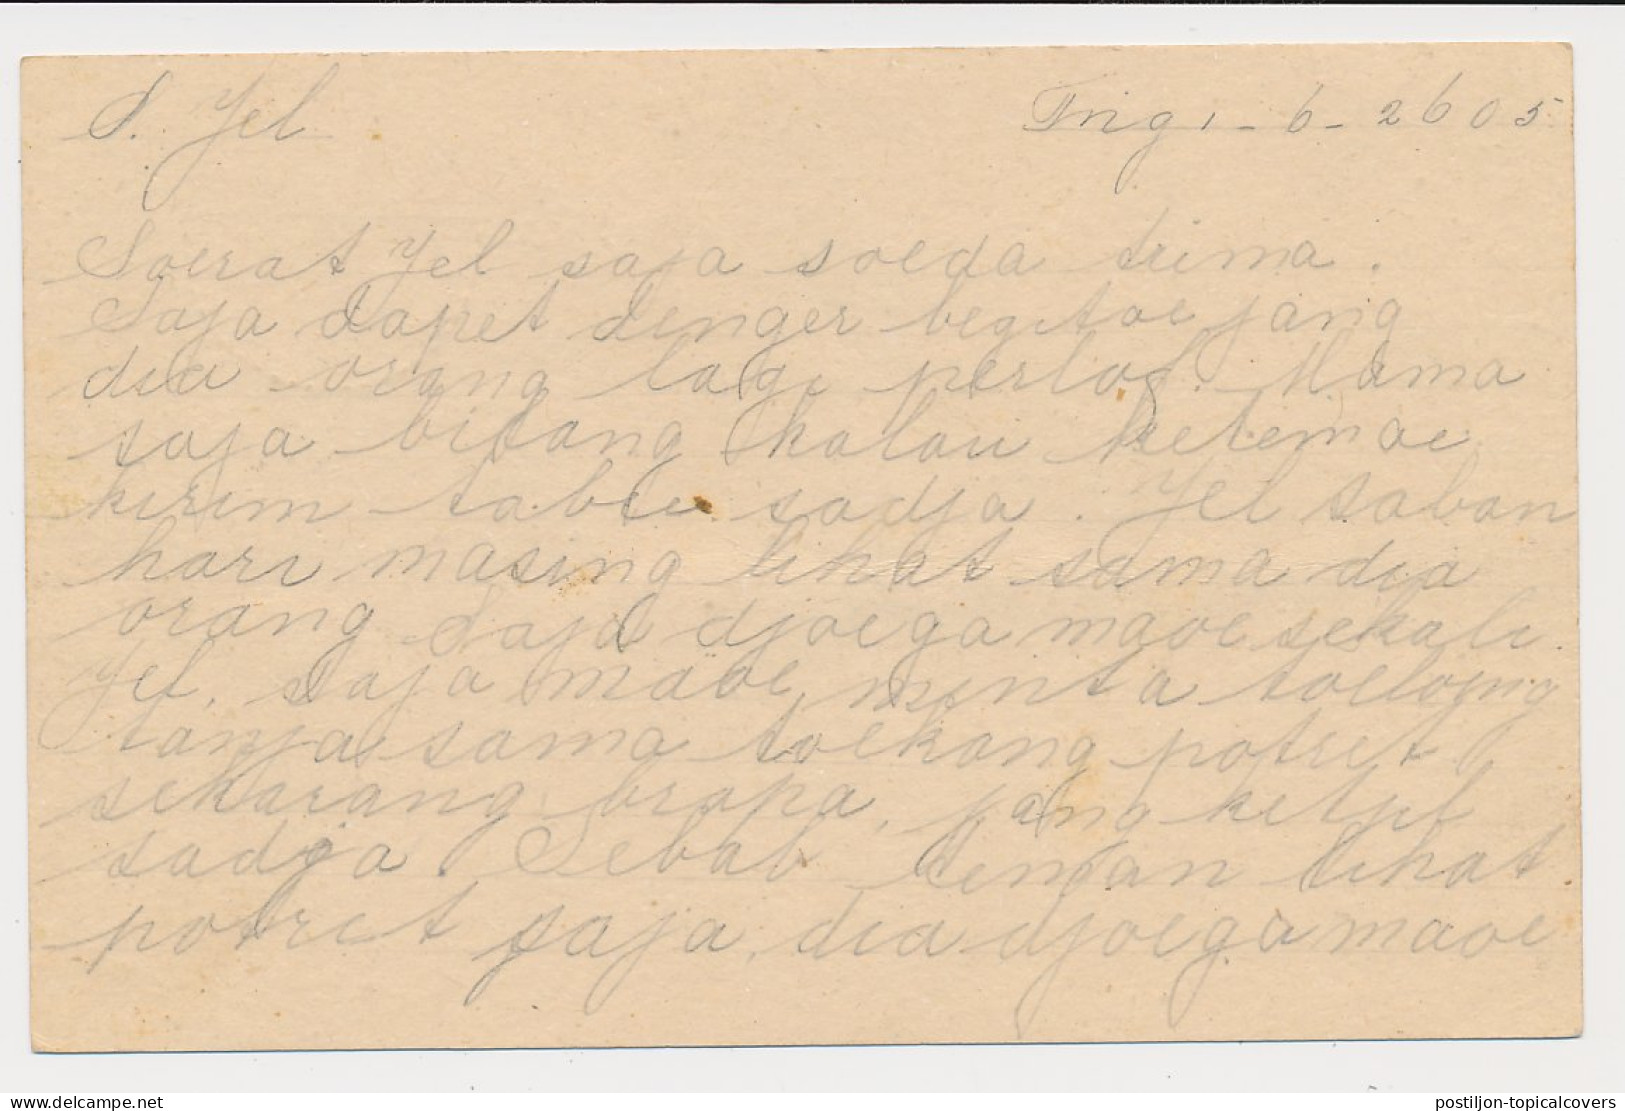 S. Yel
Tng 1-6-2605
Soerat Yel saja soeda trima.
Saja dapet denger begitoe jang
dia orang lagi perlof. Mama
saja bilang kalau ketemoe
kirim tabee sadja. Yel saban
hari masing lihat sama dia
orang. Saja djoega maoe sekali.
Yel, saja maoe, minta toeloeng
tanja sama toekang potret
sekarang brapa, jang ketjil
sadja. Sebab dengan lihat
potret saja, dia djoega maoe
postiljon-topicalcovers.delcampe.net
postiljon-topicalcovers